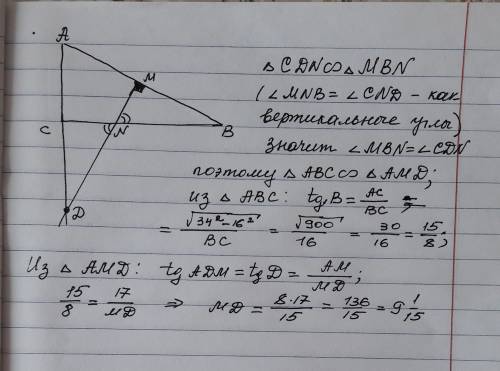 A
M
C
N
B
D
△CDN ∽ △MBN
(∠MNB = ∠CND – как
вертикальные углы)
Значит ∠MBN = ∠CDN
поэтому △ABC ∽ △AMD;
из △ABC: tg B = AC/BC =
= √(34² – 16²)/BC = √900/16 = 30/16 = 15/8;
Из △AMD: tg ADM = tg D = AM/MD;
15/8 = 17/MD ⇒ MD = 8·17/15 = 136/15 = 9 1/15